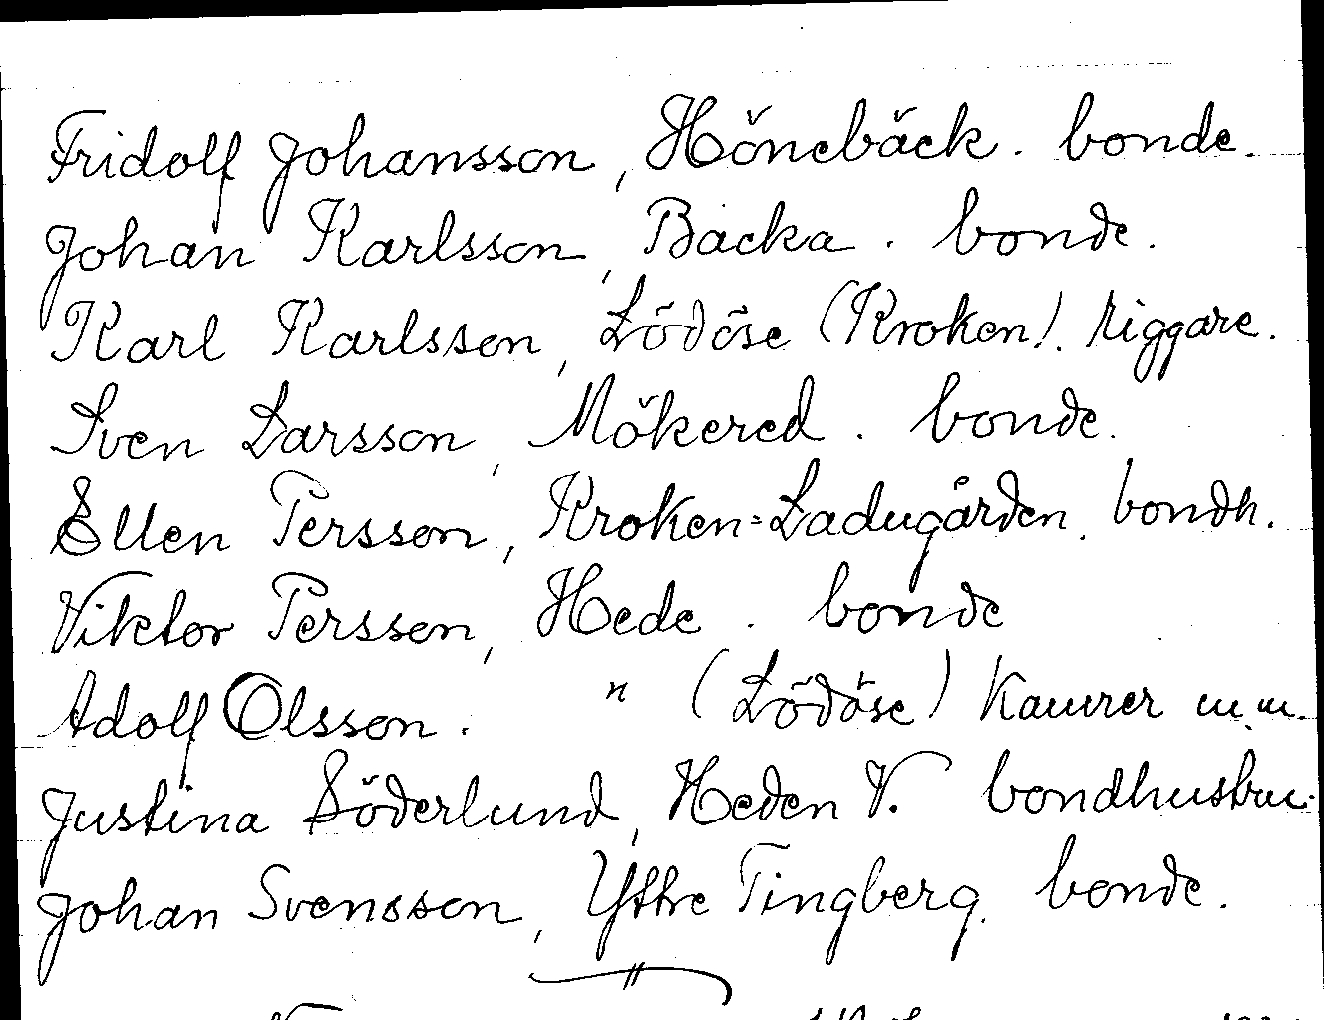 Fridolf Johansson, Hönebäck. bonde.
Johan Karlsson, Backa. bonde.
Karl Karlsson, Lödöse (Kroken). Riggare.
Sven Larsson, Mökered. bonde.
Ellen Persson, Kroken=Ladugården. bondh.
Viktor Persson, Hede. bonde
Adolf Olsson. " (Lödöse) Kamrer m.m.
Justina Söderlund, Heden V. bondhustru.
Johan Svensson, Yttre Tingberg. bonde.